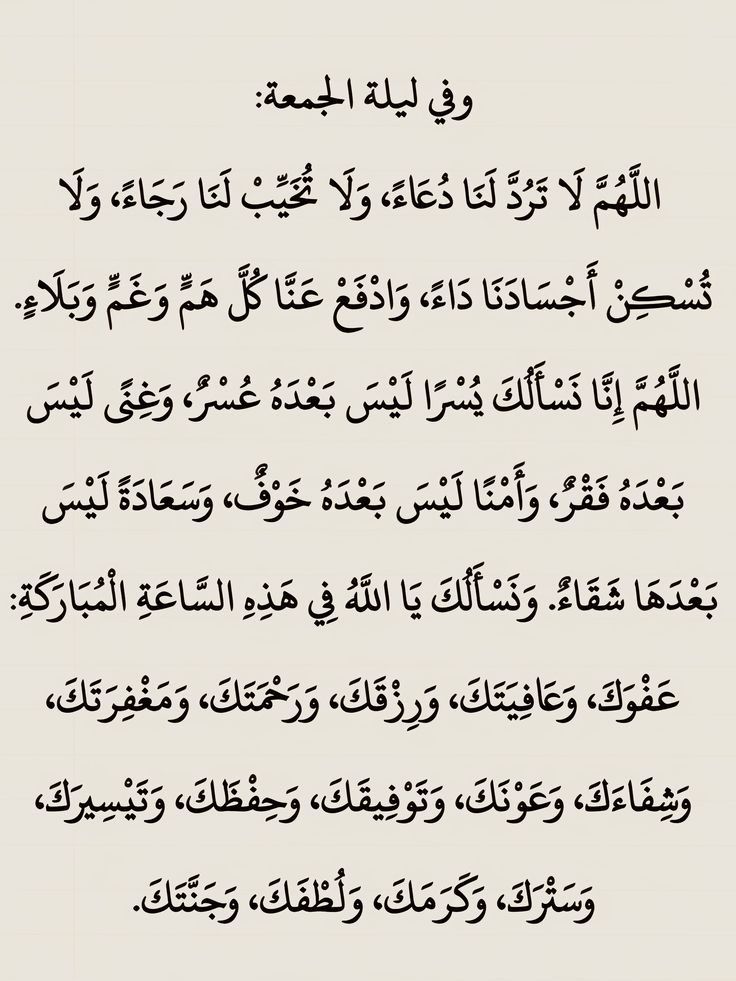 وفي ليلة الجمعة:
اللَّهُمَّ لَا تَرُدَّ لَنَا دُعَاءً، وَلَا تُخَيِّبْ لَنَا رَجَاءً، وَلَا
تُسْكِنْ أَجْسَادَنَا دَاءً، وَادْفَعْ عَنَّا كُلَّ هَمٍّ وَغَمٍّ وَبَلَاءٍ.
اللَّهُمَّ إِنَّا نَسْأَلُكَ يُسْرًا لَيْسَ بَعْدَهُ عُسْرٌ، وَغِنًى لَيْسَ
بَعْدَهُ فَقْرٌ، وَأَمْنًا لَيْسَ بَعْدَهُ خَوْفٌ، وَسَعَادَةً لَيْسَ
بَعْدَهَا شَقَاءٌ. وَنَسْأَلُكَ يَا اللَّهُ فِي هَذِهِ السَّاعَةِ الْمُبَارَكَةِ:
عَفْوَكَ، وَعَافِيَتَكَ، وَرِزْقَكَ، وَرَحْمَتَكَ، وَمَغْفِرَتَكَ،
وَشِفَاءَكَ، وَعَوْنَكَ، وَتَوْفِيقَكَ، وَحِفْظَكَ، وَتَيْسِيرَكَ،
وَسَتْرَكَ، وَكَرَمَكَ، وَلُطْفَكَ، وَجَنَّتَكَ.